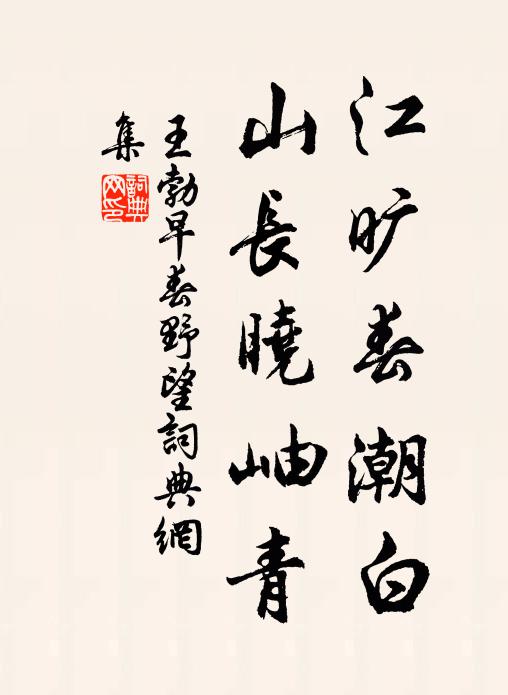 江旷春潮白
山長曉岫青
王勃早春野望詞典網
集
詞典
网印